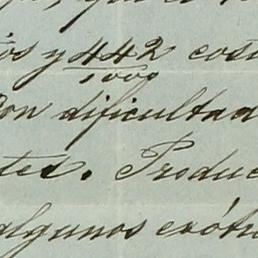 os y 442/1000 cost
con dificultad
tes. Produc
algunos exót